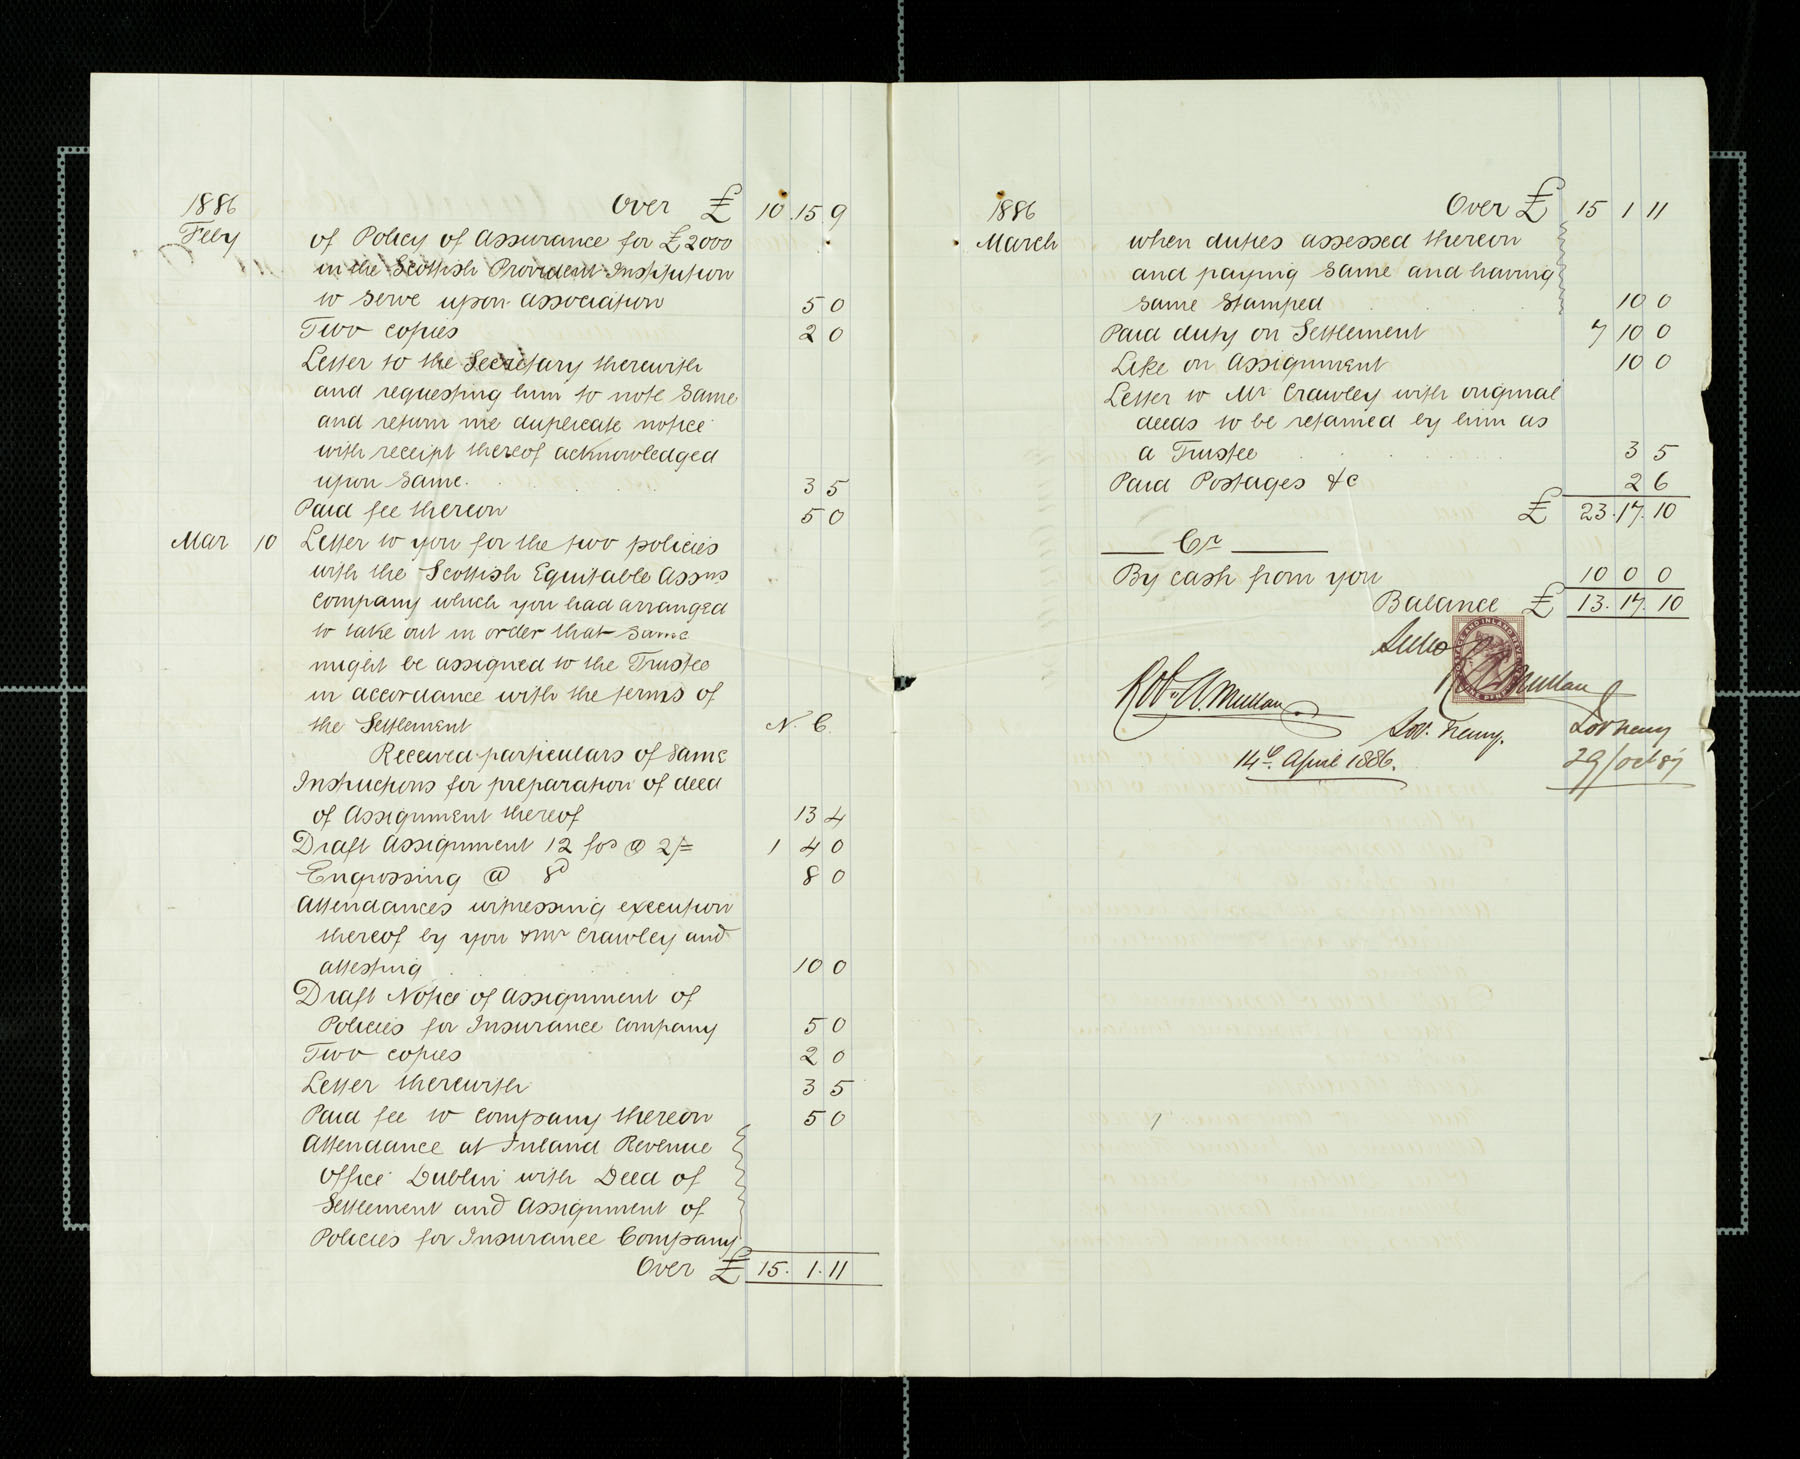 1886 Over £ 10.15 9
Feby of Policy of Assurance for £2000
in the Scottish Provident Institution
to serve upon Association 5 0
Two copies 2 0
Letter to the Secretary therewith
and requesting him to note same
and return me duplicate notice
with receipt thereof acknowledged
upon same. 3 5
Paid fee thereon 5 0
Mar 10 Letter to you for the two policies
with the Scottish Equitable Assns
Company which you had arranged
to take out in order that same
might be assigned to the Trustee
in accordance with the terms of
the Settlement N. C.
Received particulars of same
Instructions for preparation of deed
of Assignment thereof 13 4
Draft Assignment 12 fos @ 2/= 1 4 0
Engrossing @ 8d 8 0
Attendances witnessing execution
thereof by you & Mr Crawley and
attesting 10 0
Draft Notice of Assignment of
Policies for Insurance Company 5 0
Two copies 2 0
Letter therewith 3 5
Paid fee to Company thereon 5 0
Attendance at Inland Revenue
Office Dublin with Deed of
Settlement and Assignment of
Policies for Insurance Company
Over £ 15. 1. 11
1886 Over £ 15 1 11
March when duties assessed thereon
and paying same and having
same stamped 10 0
Paid duty on Settlement 7 10 0
Like on Assignment 10 0
Letter to Mr Crawley with original
deeds to be retained by him as
a Trustee 3 5
Paid Postages &c 2 6
£ 23.17.10
Cr
By cash from you 10 0 0
Balance £ 13.17.10
Robt A. Mullan
Mullan
Sol. Newry.
Sol Newry
14th April 1886.
29/Oct 87